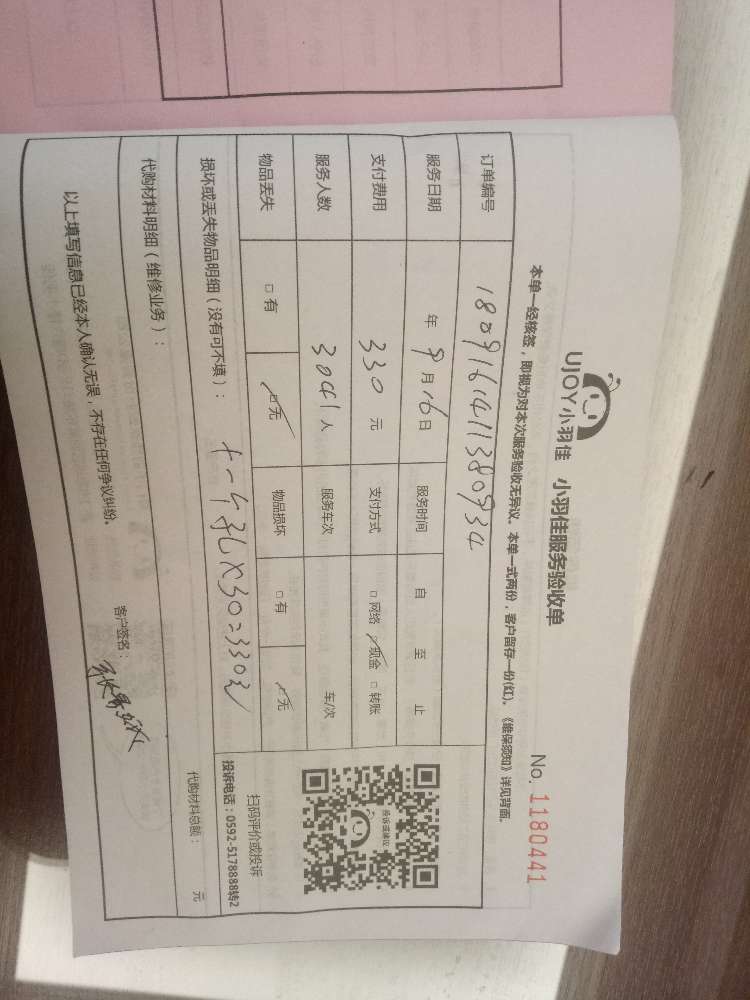 UJOY小羽佳 小羽佳服务验收单
No. 1180441
本单一经核签，即视为对本次服务验收无异议。本单一式两份，客户留存一份(红)。《维保须知》详见背面。
订单编号 1809161411380934
服务日期 年 9 月 16 日 服务时间 自 至 止
支付费用 330 元 支付方式 □ 网络 现金 □ 转账
服务人数 3041 人 服务车次 车/次
物品丢失 □ 有 □ 无 物品损坏 □ 有 无
投诉或建议
扫码评价或投诉
投诉电话：0592-5178888转2
损坏或丢失物品明细（没有可不填）： 十一 X30=330元
代购材料明细（维修业务）： 代购材料总额： 元
以上填写信息已经本人确认无误，不存在任何争议纠纷。 客户签名：